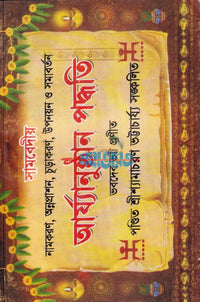 সামবেদীয়
নামকরণ, অন্নপ্রাশন, চূড়াকরণ, উপনয়ন ও সমাবর্ত্তন
আর্য্যানুষ্ঠান পদ্ধতি
ভবদেব ভট্ট প্রণীত
পণ্ডিত শ্রীশ্যামাচরণ ভট্টাচার্য্য সঙ্কলিত